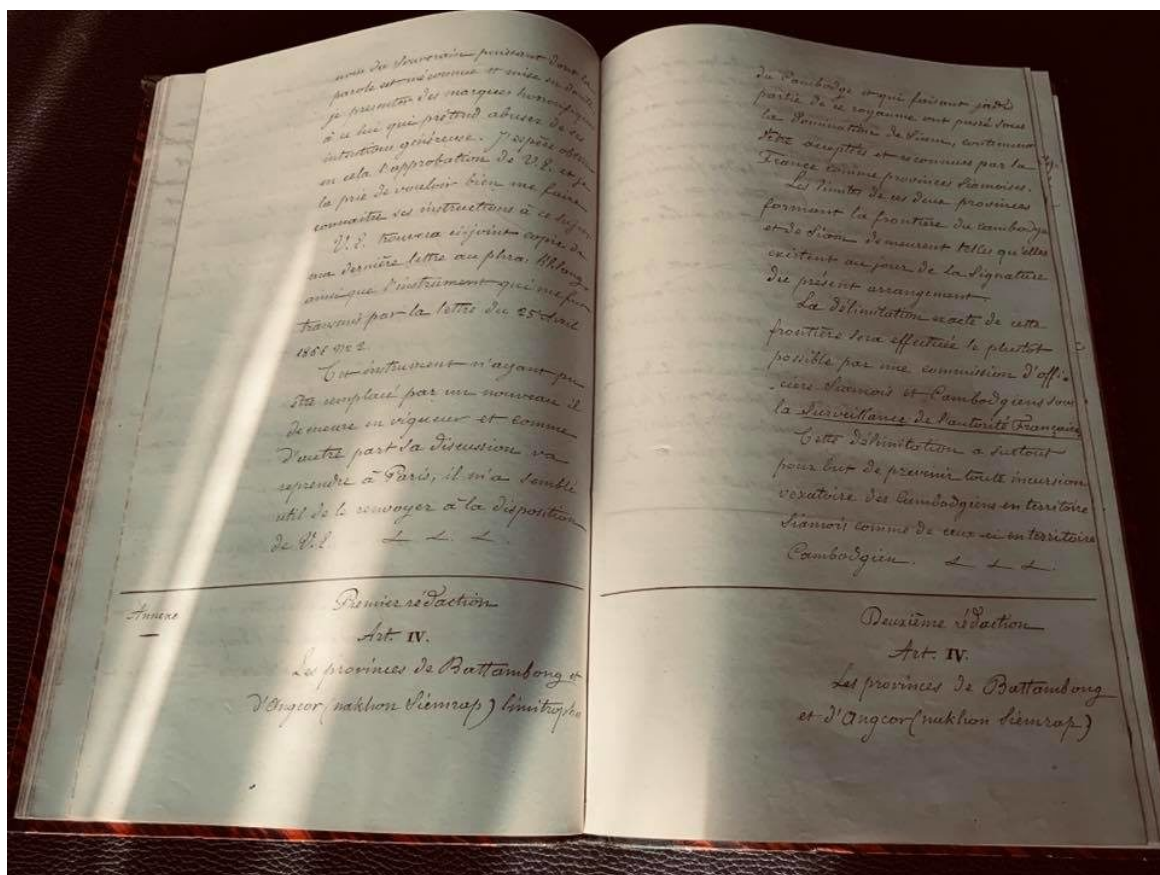 nom du Souverain pendant dont la
parole est méconnue et mise en doute
je présenter des marques honorifiques
à celui qui prétend abuser de ses
intentions généreuse. J'espère obtenir
en cela l'approbation de V.E. et je
la prie de vouloir bien me faire
connaitre ses instructions à ce sujet.
V.E. trouvera ci-joint copie de
ma dernière lettre au phra Khlang
ainsi que l'instrument qui me fut
transmis par la lettre du 25 Avril
Nº 2.
Cet instrument n'ayant pu
être remplacé par un nouveau il
demeure en vigueur et comme
d'autre part la discussion va
reprendre à Paris, il m'a semblé
util de le renvoyer à la disposition
de V.E.
Annexe
Premier rédaction
Art. IV.
Les provinces de Battambong et
d'Angcor (nakhon Siemrap) limitrophe
du Cambodge et qui faisant jadis
partie de ce royaume ont passé sous
la domination de Siam, continuent
être acceptés et reconnues par la
France comme provinces Siamoises.
Les limites de ces deux provinces
formant la frontière du Cambodge
et de Siam demeurent telles qu'elles
existent au jour de la signature
du présent arrangement.
La délimitation exacte de cette
frontière sera effectuée le plustôt
possible par une commission d'offi-
ciers Siamois et Cambodgiens sous
la Surveillance de l'autorité Française
Cette délimitation a surtout
pour but de prevenir toute incursion
vexatoire des Cambodgiens en territoire
Siamois comme de ceux-ci en territoire
Cambodgien.
Deuxième rédaction
Art. IV.
Les provinces de Battambong
et d'Angcor (nakhon Siemrap)